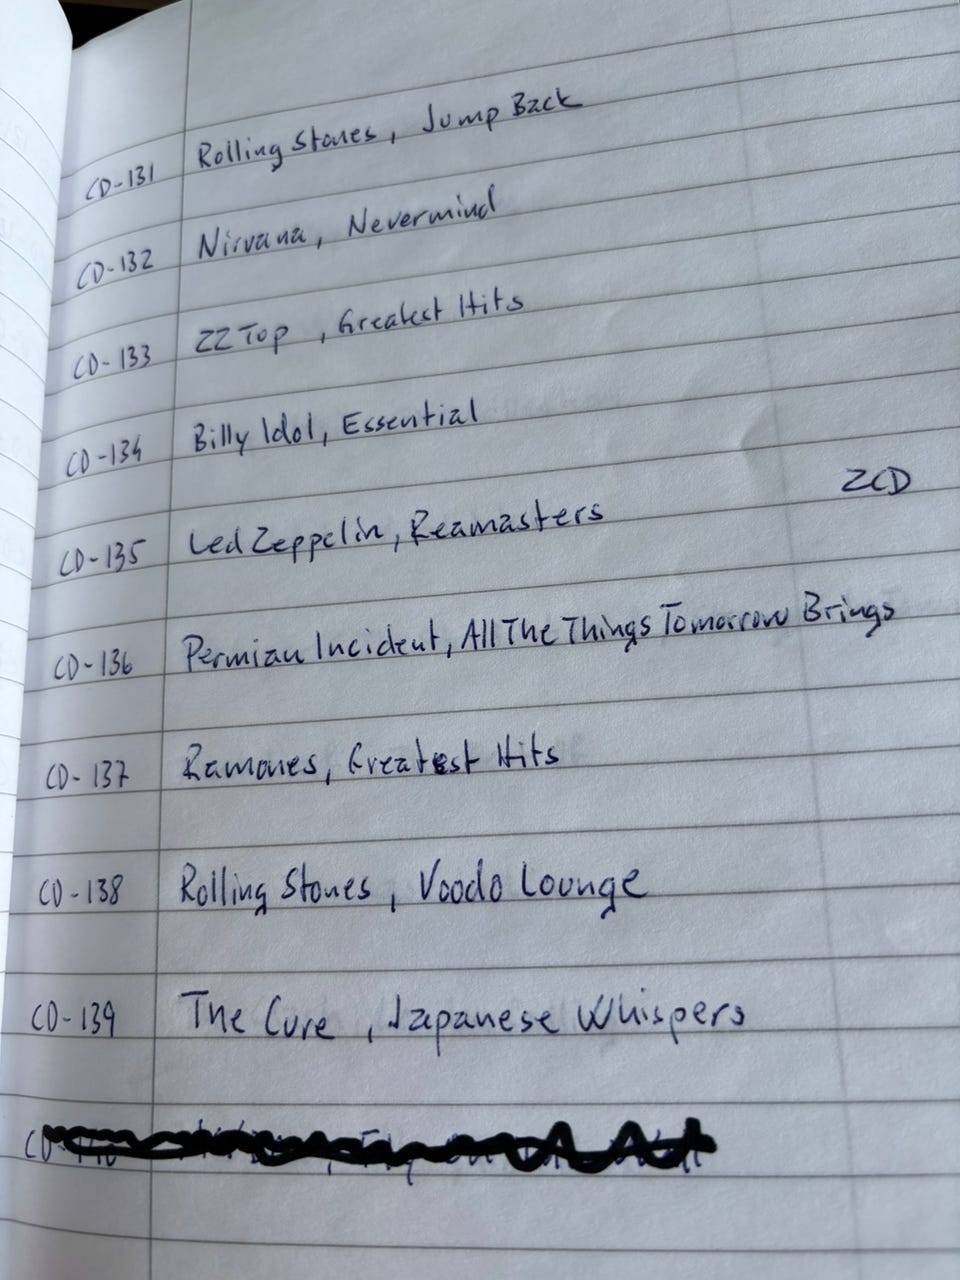 CD-131 Rolling Stones, Jump Back
CD-132 Nirvana, Nevermind
CD-133 ZZ Top, Greatest Hits
CD-134 Billy Idol, Essential
CD-135 Led Zeppelin, Reamasters 2CD
CD-136 Permian Incident, All The Things Tomorrow Brings
CD-137 Ramones, Greatest Hits
CD-138 Rolling Stones, Voodo Lounge
CD-139 The Cure, Japanese Whispers